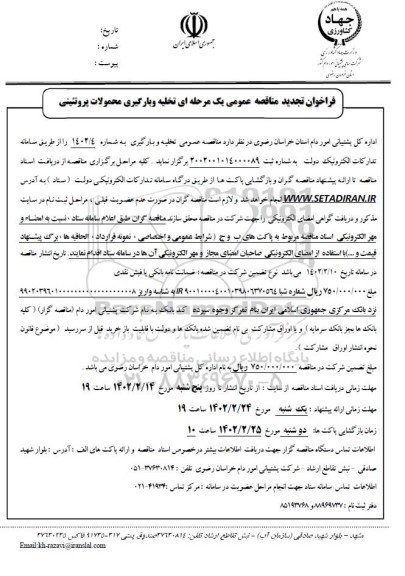 همه با هم
جهاد
کشاورزی
جمهوری اسلامی ایران
تاریخ:
شماره :
پیوست :
فراخوان تجدید مناقصه عمومی یک مرحله ای تخلیه وبارگیری محمولات پروتئینی
اداره کل پشتیبانی امور دام استان خراسان رضوی در نظر دارد مناقصه عمومی تخلیه و بارگیری به شماره ۱۴۰۲/۴ را از طریق سامانه
تدارکات الکترونیک دولت به شماره ثبت ۲۰۰۲۰۰۱۰۱۴۰۰۰۰۸۹ برگزار نماید . کلیه مراحل برگزاری مناقصه از دریافت اسناد
مناقصه تا ارائه پیشنهاد مناقصه گران و بازگشایی پاکت ها از طریق درگاه سامانه تدارکات الکترونیکی دولت ( ستاد ) به آدرس
WWW.SETADIRAN.IR انجام خواهد شد و لازم است مناقصه گران در صورت عدم عضویت قبلی ، مراحل ثبت نام در سایت
مذکور و دریافت گواهی امضای الکترونیکی را جهت شرکت در مناقصه محقق سازند.مناقصه گران طبق اعلام سامانه ستاد ، نسبت به امضاء و
مهر الکترونیکی اسناد مناقصه مربوط به پاکت های ب و ج ( شرایط عمومی و اختصاصی ، نمونه قرارداد ، الحاقیه ها ، برگ پیشنهاد
قیمت و ...)با استفاده از امضای الکترونیکی صاحبان امضای مجاز و مهر الکترونیکی آن ها در سامانه ستاد اقدام نمایند. تاریخ انتشار مناقصه
در سامانه تاریخ ۱۴۰۲/۲/۱۰ می باشد نوع تضمین شرکت در مناقصه : ضمانت نامه بانکی یا فیش نقدی
مبلغ ۷۵۰/۰۰۰/۰۰۰ ریال شماره شبا
نزد بانک مرکزی جمهوری اسلامی ایران بنام تمرکز وجوه سپرده
مبلغ تضمین شرکت در مناقصه ۷۵۰/۰۰۰/۰۰۰ ریال به نام اداره کل پشتیبانی امور دام خراسان رضوی می باشد .
مهلت زمانی دریافت اسناد مناقصه از سایت : از تاریخ انتشار تا روز پنج شنبه مورخ ۱۴۰۲/۲/۱۴ ساعت ۱۹
مهلت زمانی ارائه پیشنهاد : یک شنبه مورخ ۱۴۰۲/۲/۲۴ ساعت ۱۹
زمان بازگشایی پاکت ها: دو شنبه مورخ ۱۴۰۲/۲/۲۵ ساعت ۱۰
اطلاعات تماس دستگاه مناقصه گزار جهت دریافت اطلاعات بیشتر درخصوص اسناد مناقصه و ارائه پاکت های الف : آدرس : بلوار شهید
صادقی – نبش تقاطع ارشاد –شرکت پشتیبانی امور دام خراسان رضوی تلفن : ۳۷۶۳۰۸۱۴-۰۵۱
اطلاعات تماس سامانه ستاد جهت انجام مراحل عضویت در سامانه : مرکز تماس :۴۱۹۳۴-۰۲۱
دفتر ثبت نام : ۸۸۹۶۹۷۳۷و ۸۵۱۹۳۷۶۸
مشهد – بلوار شهید صادقی (سازمان آب) – نبش تقاطع ارشاد تلفن: ۳۷۶۳۰۸۱۴
Email:kh-razavi@iranslal.com